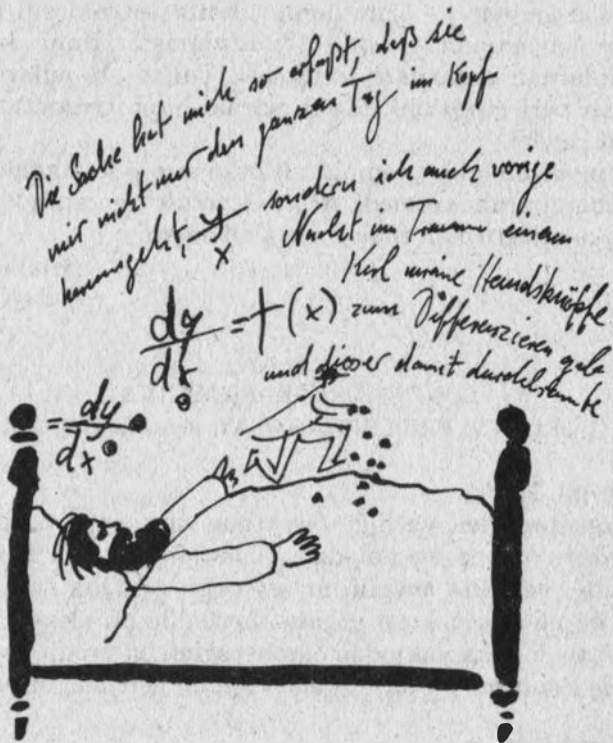 Die Sache hat mich so erfaßt, daß sie
mir nicht nur den ganzen Tag im Kopf
herumgeht, y/x sondern ich auch vorige
Nacht im Traum einem
Kerl meine Hemdsknöpfe
dy/dx = f(x) zum Differenzieren gab
und dieser damit durchbrannte
= dy/dx